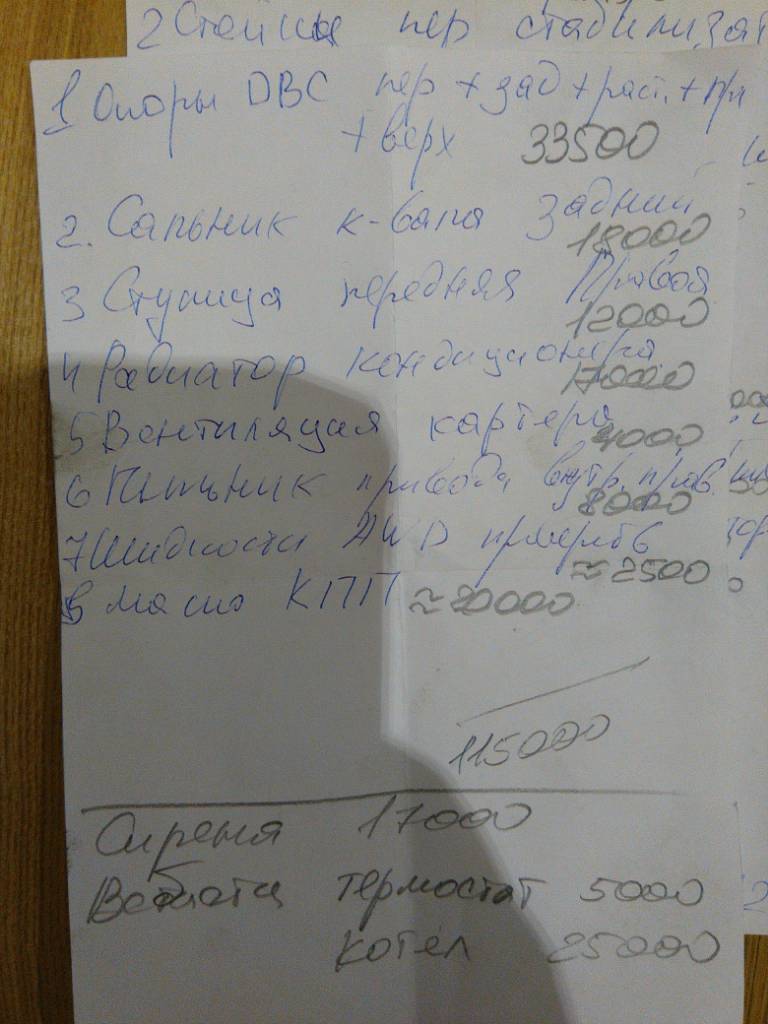 2 Стойки пер стабилизат
1 Опоры ДВС пер + зад + раст. + пра
+ верх 33500
2. Сальник к-вала задний
18000
3 Ступица передняя Правая
12000
4 Радиатор кондиционера
17000
5 Вентиляция картера
4000
6 Пыльник привода внутр. прав.
8000
7 Жидкости AWD
≈ 2500
8 Масло КПП ≈ 20000
115000
Сирена 17000
Вебаста термостат 5000
котёл 25000